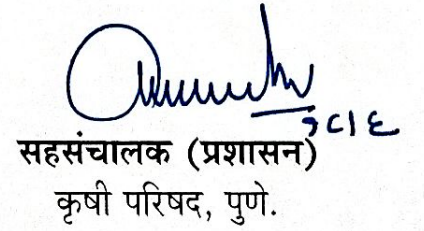 सहसंचालक (प्रशासन)
कृषी परिषद, पुणे.